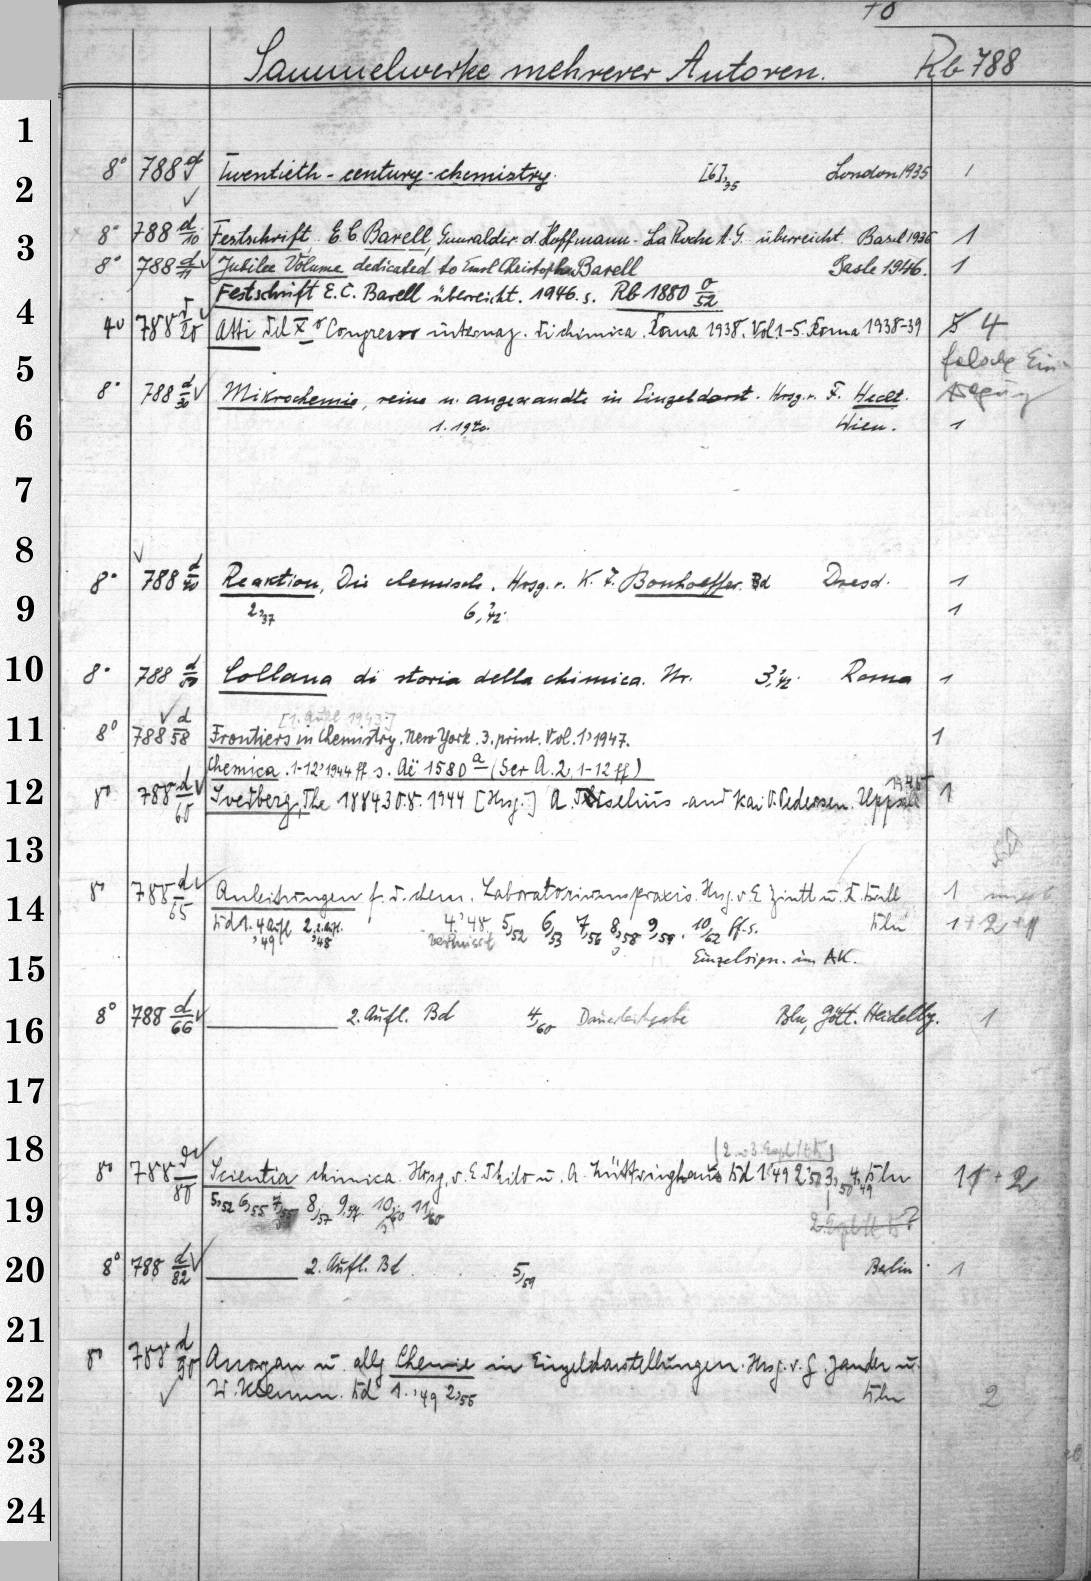 70
Sammelwerke mehrerer Autoren. Rb 788
1
8° 788 d Twentieth-century-chemistry. [6],35 London 1935 1
2
8° 788 d/10 Festschrift, E. C. Barell, Generaldir. d. Hoffmann-La Roche A. G. überreicht. Basel 1936 1
3
8° 788 d/11 Jubilee Volume dedicated to Emil Christoph Barell Basle 1946. 1
Festschrift E. C. Barell überreicht. 1946. s. Rb 1880 o/52
4
4° 788 d/20 Atti del X° Congresso internaz. di chimica. Roma 1938. Vol. 1-5. Roma 1938-39 5 4
5
falsche Ein-
8° 788 d/30 Mikrochemie, reine u. angewandte in Einzeldarst. Hrsg. v. F. Hecht.
6
1. 1940. Wien. 1
7
8
8° 788 d/40 Reaktion, Die chemische. Hrsg. v. K. F. Bonhoeffer. Bd Dresd. 1
9
2,37 6,42. 1
10
8° 788 d/50 Collana di storia della chimica. Nr. 3,42. Roma 1
[1. Aufl. 1943.]
11
8° 788 d/58 Frontiers in Chemistry. New York. 3. print. Vol. 1, 1947. 1
Chemica. 1-12, 1944 ff s. Aë 1580 a (Ser A. 2, 1-12 ff)
12
8° 788 d/60 Svedberg, The 1884 30.8. 1944 [Hrsg.] A. Tiselius and Kai O. Pedersen. Uppsala 1945 1
13
8° 788 d/65 Anleitungen f. d. chem. Laboratoriumspraxis. Hrsg. v. E. Zintl u. Bd 1
14
Bd 1. 4. Aufl. ,49 2, 2. Aufl. ,48 4,48 5/52 6/53 7/56 8,58 9/59. 10/62 ff. s. Bln 1+2+
vermisst
15
Einzelsign. im AK.
16
8° 788 d/66 2. Aufl. Bd 4/60 Dauerleihgabe Bln, Gött. Heidelbg. 1
17
18
[2 u 3 Expl. LK]
8° 788 d/80 Scientia chimica. Hrsg. v. E. Thilo u. A. Lüttringhaus Bd 1,49 2,50 3,50 4,49 Bln 11+2
19
5,52 6,55 7,55 8/57 9,57 10/60 11/60
20
8° 788 d/82 2. Aufl. Bd 5/59 Berlin 1
21
8° 788 d/90 Anorgan u. allg Chemie in Einzeldarstellungen. Hrsg. v. G. Jander u.
22
W. Klemm. Bd 1.,49 2,55 Bln 2
23
24